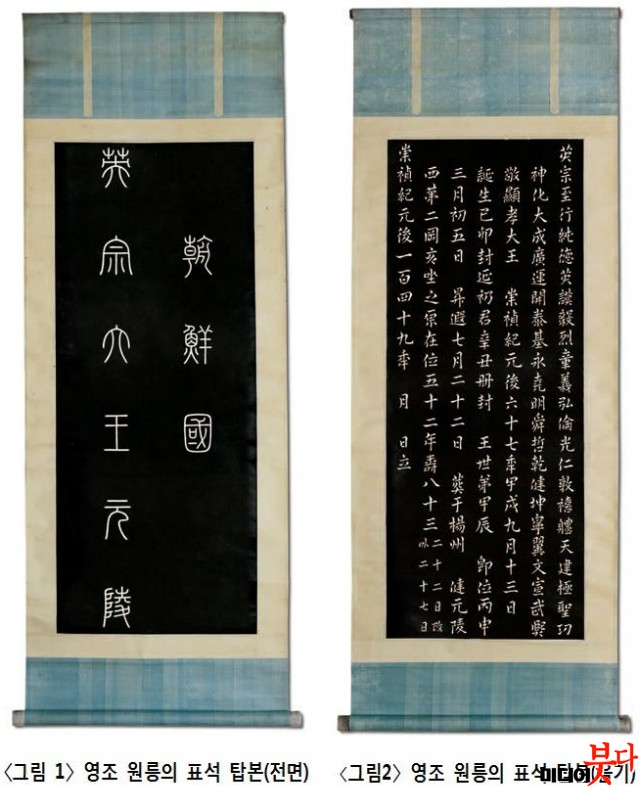 朝鮮國
英宗大王元陵
英宗至行純德英謨毅烈章義弘倫光仁敦禧體天建極聖功
神化大成廣運開泰基永堯明舜哲乾健坤寧翼文宣武熙
敬顯孝大王 崇禎紀元後六十七年甲戌九月十三日
誕生己卯封延礽君辛丑册封 王世弟甲辰 卽位丙申
三月初五日 昇遐七月二十二日 葬于楊州 健元陵
西第二岡亥坐之原在位五十二年壽八十三
二十二日改
以二十七日
崇禎紀元後一百四十九年 月 日立
〈그림 1〉 영조 원릉의 표석 탑본(전면)
〈그림2〉 영조 원릉의 표석
미디어
붓다